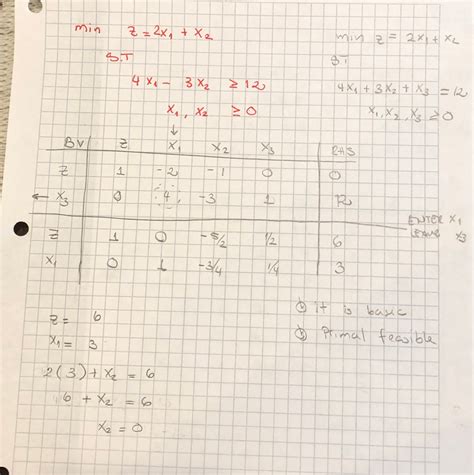 min z = 2x₁ + x₂
S.T
4x₁ - 3x₂ ≥ 12
x₁, x₂ ≥ 0
min z = 2x₁ + x₂
ST
4x₁ + 3x₂ + x₃ = 12
x₁, x₂, x₃ ≥ 0
↓
BV z x₁ x₂ x₃ RHS
z 1 -2 -1 0 0
← x₃ 0 4 -3 1 12
ENTER x₁
LEAVE x₃
z 1 0 -5/2 1/2 6
x₁ 0 1 -3/4 1/4 3
① it is basic
② Primal feasible
z = 6
x₁ = 3
2(3) + x₂ = 6
6 + x₂ = 6
x₂ = 0